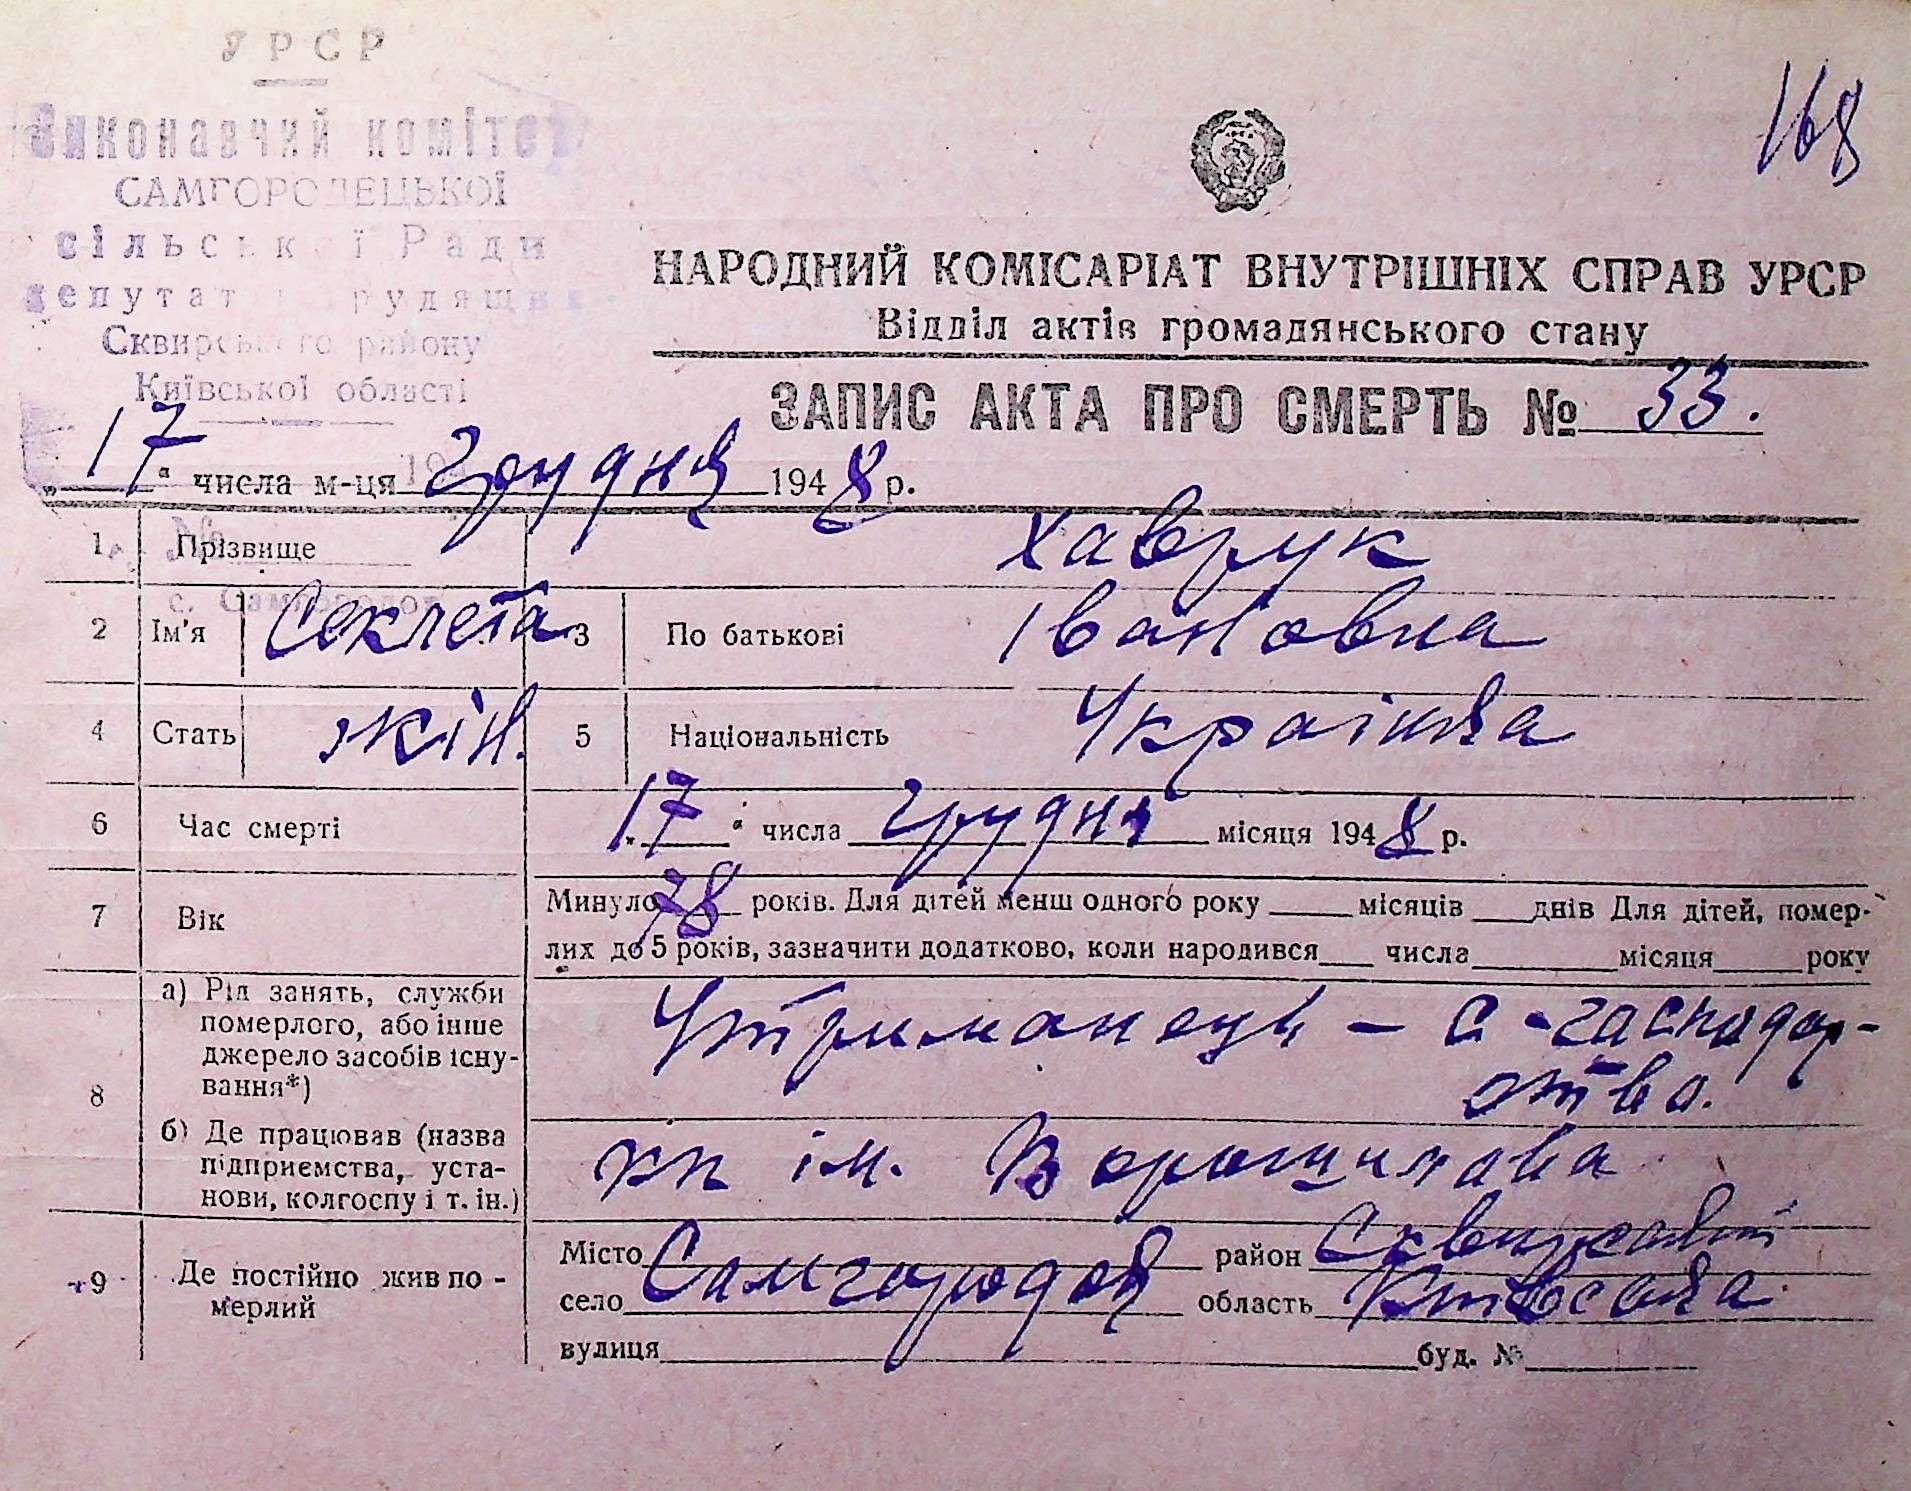 УРСР
Виконавчий комітет
САМГОРОДЕЦЬКОЇ
сільської Ради
депутатів трудящих
Сквирського району
Київської області
194
№
с. Самгородок
168
НАРОДНИЙ КОМІСАРІАТ ВНУТРІШНІХ СПРАВ УРСР
Відділ актів громадянського стану
ЗАПИС АКТА ПРО СМЕРТЬ № 33.
„17“ числа м-ця грудня 1948 р.
1 Прізвище Хаврук
2 Ім'я Секлета 3 По батькові Івановна
4 Стать жін. 5 Національність Українка
6 Час смерті „17“ числа грудня місяця 1948 р.
7 Вік Минуло 78 років. Для дітей менш одного року ____ місяців ____ днів Для дітей, помер-
лих до 5 років, зазначити додатково, коли народився ____ числа ____ місяця ____ року
8 а) Рід занять, служби
померлого, або інше
джерело засобів існу-
вання*)
Утриманець – с-господар-
ства.
б) Де працював (назва
підприємства, уста-
нови, колгоспу і т. ін.)
кп ім. Ворошилова
9 Де постійно жив по-
мерлий
Місто Самгородок район Сквирський
село область Київська
вулиця ____ буд. № ____